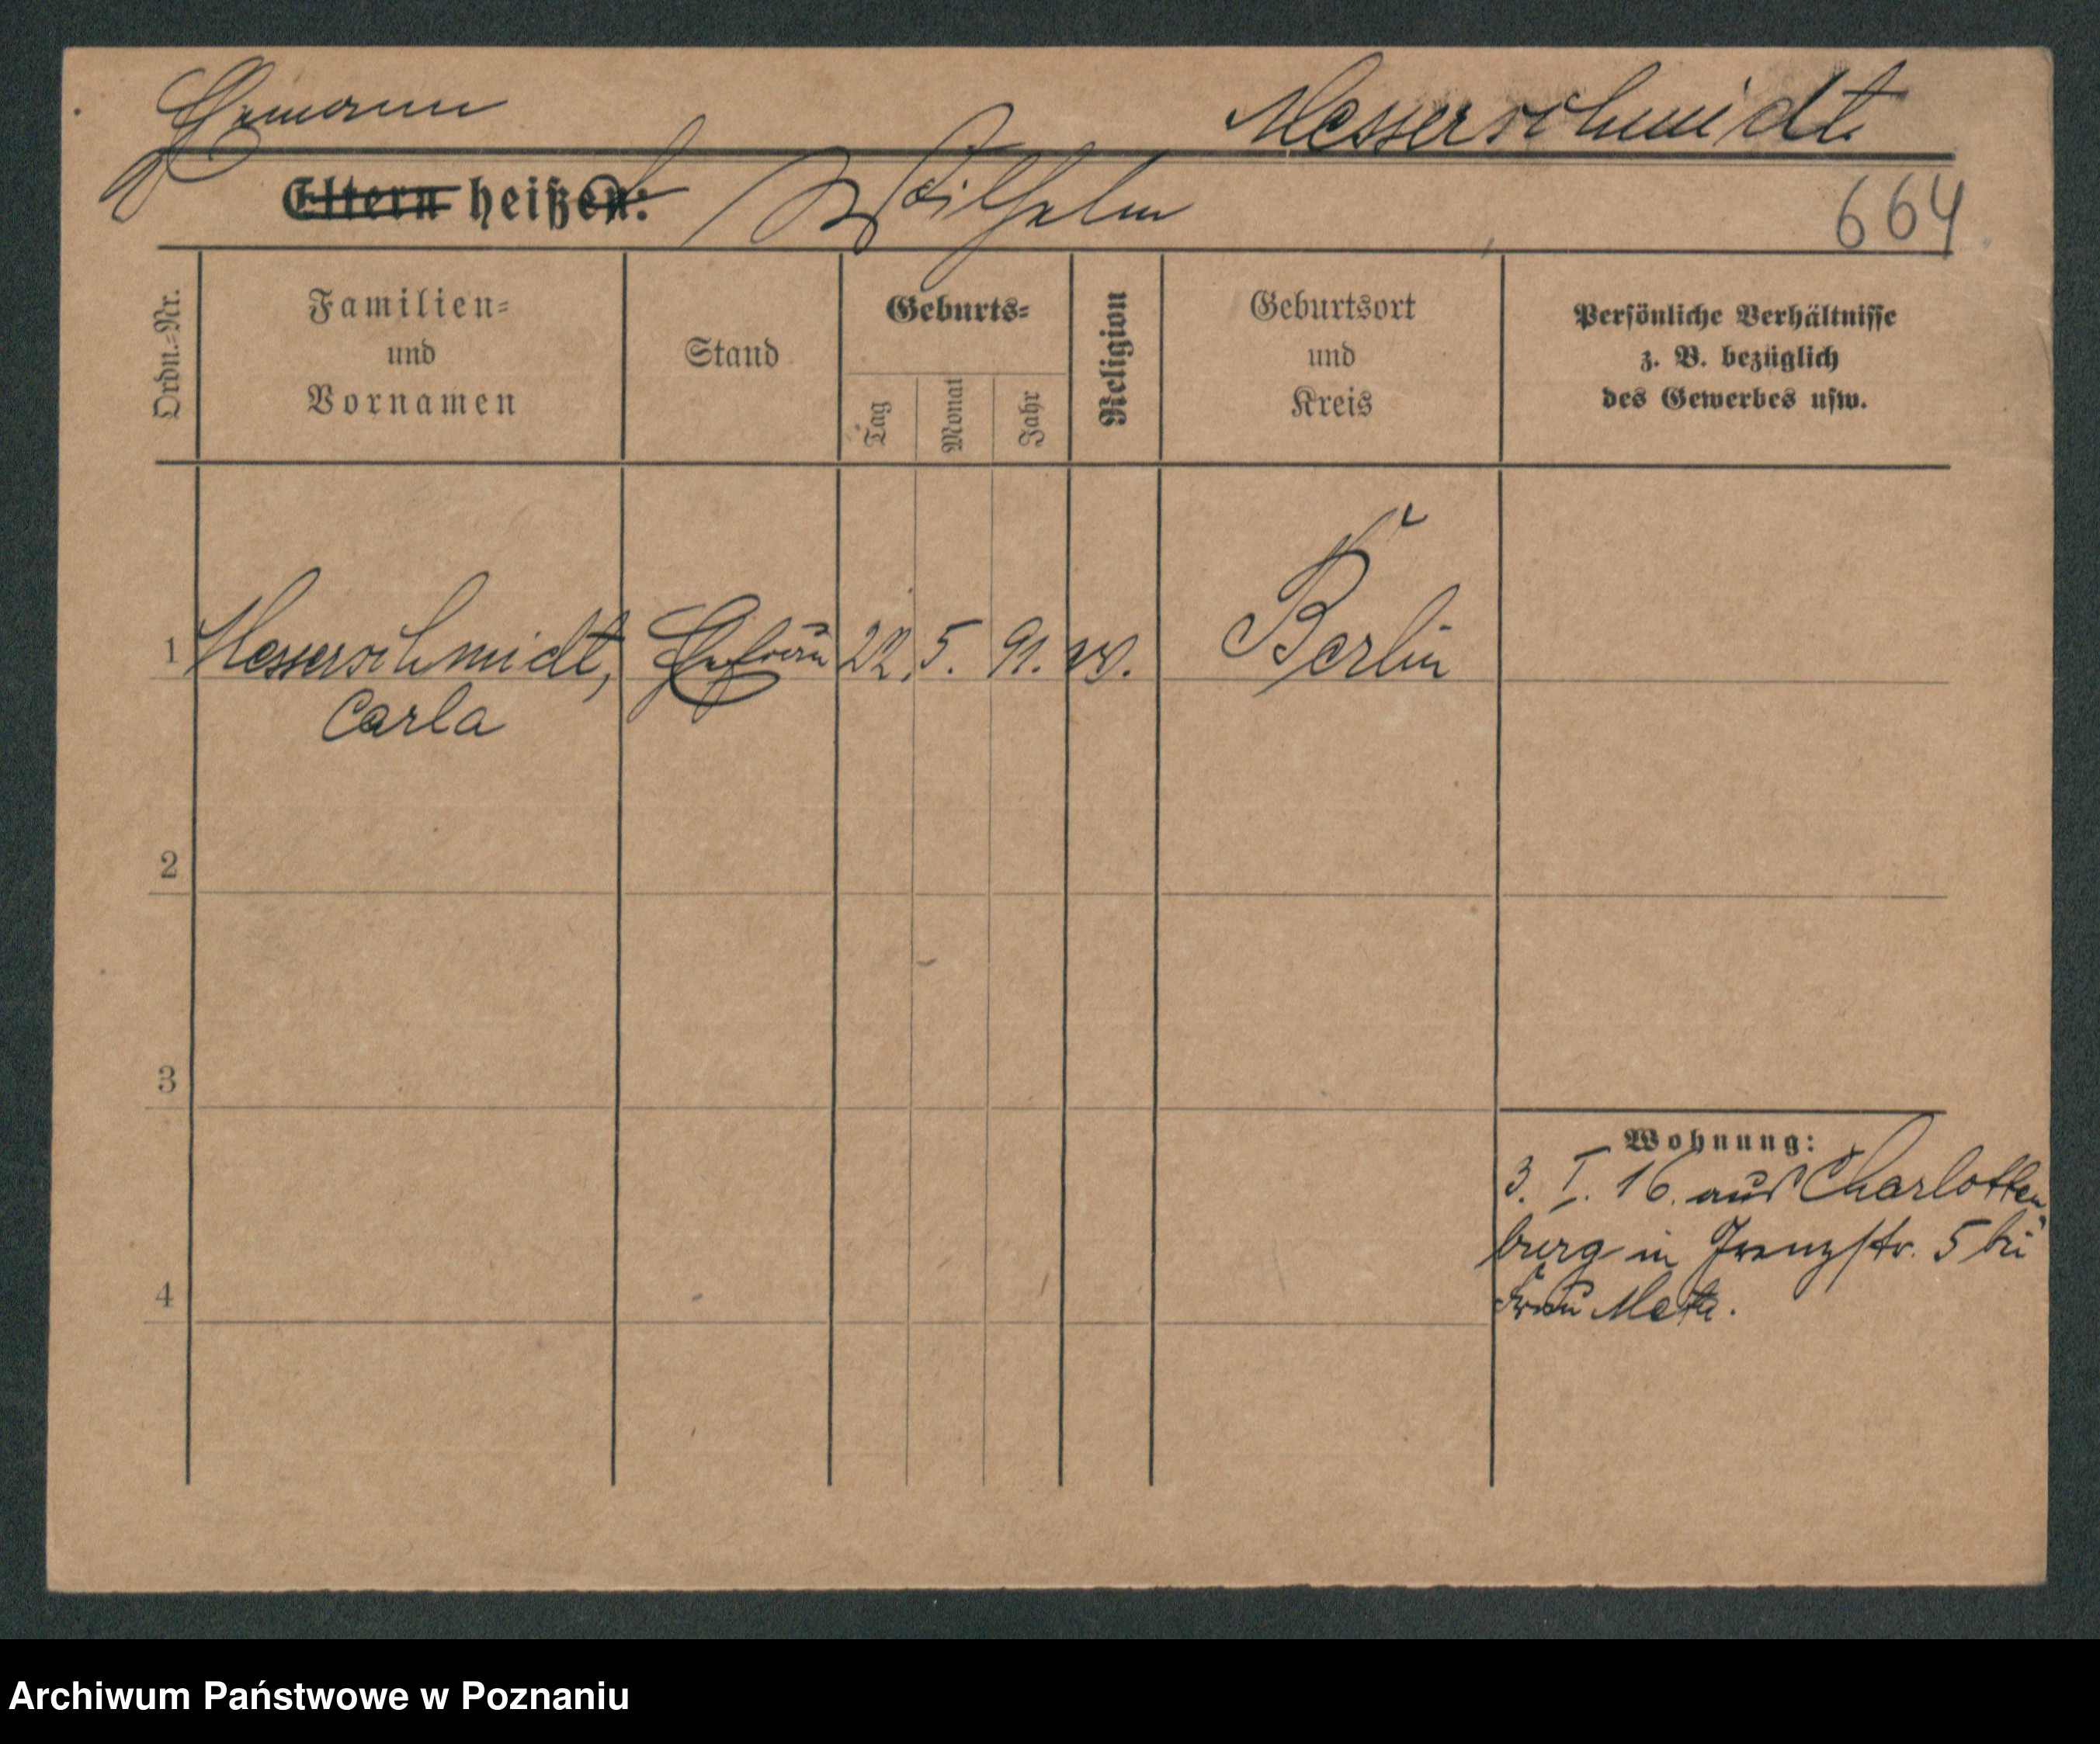 Ehemann Messerschmidt.
Eltern heißen: Wilhelm
664
Ordn.-Nr.
Familien-
und
Vornamen
Stand
Geburts-
Tag
Monat
Jahr
Religion
Geburtsort
und
Kreis
Persönliche Verhältnisse
z. B. bezüglich
des Gewerbes usw.
1 Messerschmidt, Ehefrau 22. 5. 91. Berlin
Carla
2
3
4
Wohnung:
3. I. 16. aus Charlotten
burg in 5 bei
Frau
Archiwum Państwowe w Poznaniu